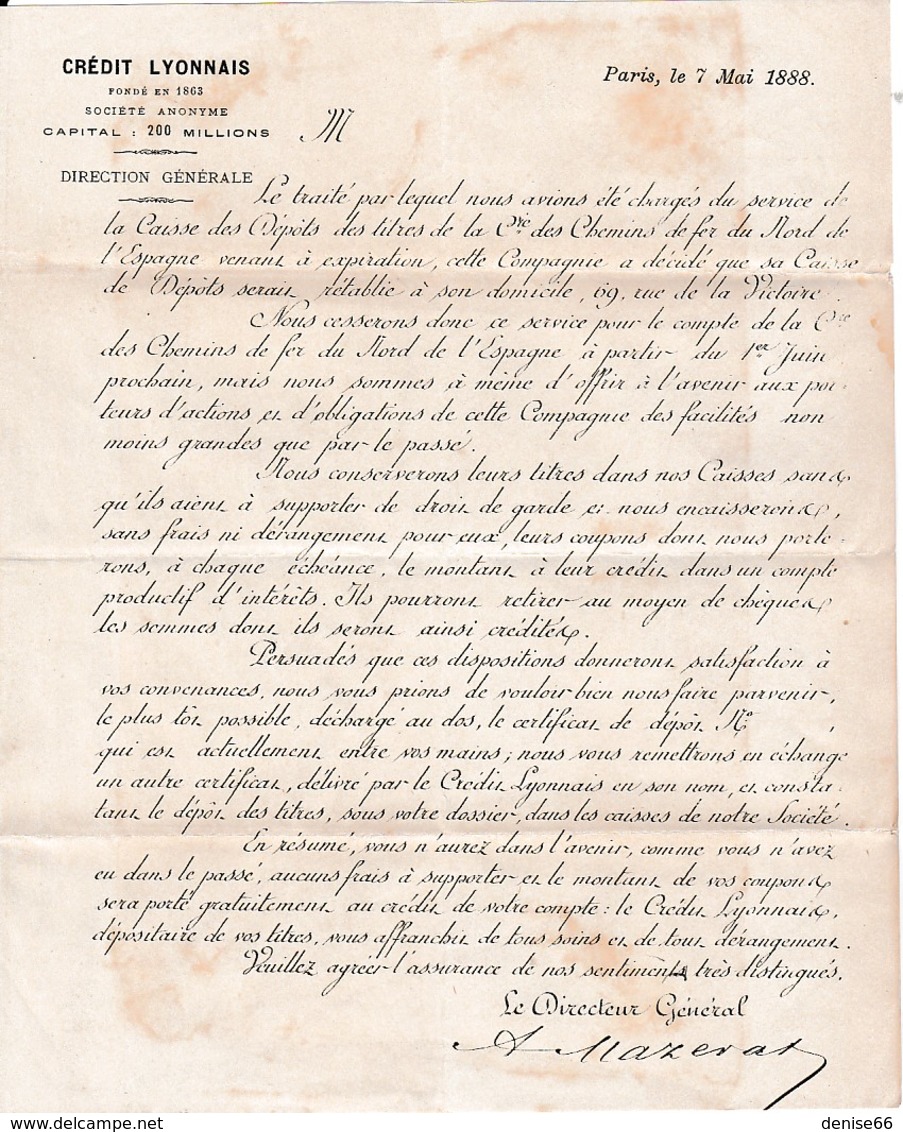 CRÉDIT LYONNAIS
FONDÉ EN 1863
SOCIÉTÉ ANONYME
CAPITAL : 200 MILLIONS
DIRECTION GÉNÉRALE
Paris, le 7 Mai 1888.
M
Le traité par lequel nous avions été chargés du service de
la Caisse des Dépôts des titres de la Cie des Chemins de fer du Nord de
l'Espagne venant à expiration, cette Compagnie a décidé que sa Caisse
de Dépôts serait rétablie à son domicile, 69, rue de la Victoire.
Nous cesserons donc ce service pour le compte de la Cie
des Chemins de fer du Nord de l'Espagne à partir du 1er Juin
prochain, mais nous sommes à même d'offrir à l'avenir aux por-
teurs d'actions et d'obligations de cette Compagnie des facilités non
moins grandes que par le passé.
Nous conserverons leurs titres dans nos Caisses sans
qu'ils aient à supporter de droit de garde et nous encaisserons,
sans frais ni dérangement pour eux, leurs coupons dont nous porte-
rons, à chaque échéance, le montant à leur crédit dans un compte
productif d'intérêts. Ils pourront retirer au moyen de chèques
les sommes dont ils seront ainsi crédités.
Persuadés que ces dispositions donneront satisfaction à
vos convenances, nous vous prions de vouloir bien nous faire parvenir,
le plus tôt possible, déchargé au dos, le certificat de dépôt No ,
qui est actuellement entre vos mains; nous vous remettrons en échange
un autre certificat, délivré par le Crédit Lyonnais en son nom, et consta-
tant le dépôt des titres, sous votre dossier, dans les caisses de notre Société.
En résumé, vous n'aurez dans l'avenir, comme vous n'avez
eu dans le passé, aucuns frais à supporter et le montant de vos coupons
sera porté gratuitement au crédit de votre compte : le Crédit Lyonnais,
dépositaire de vos titres, vous affranchit de tous soins et de tout dérangement.
Veuillez agréer l'assurance de nos sentiments très distingués.
Le Directeur Général
A Mazerat
denise66